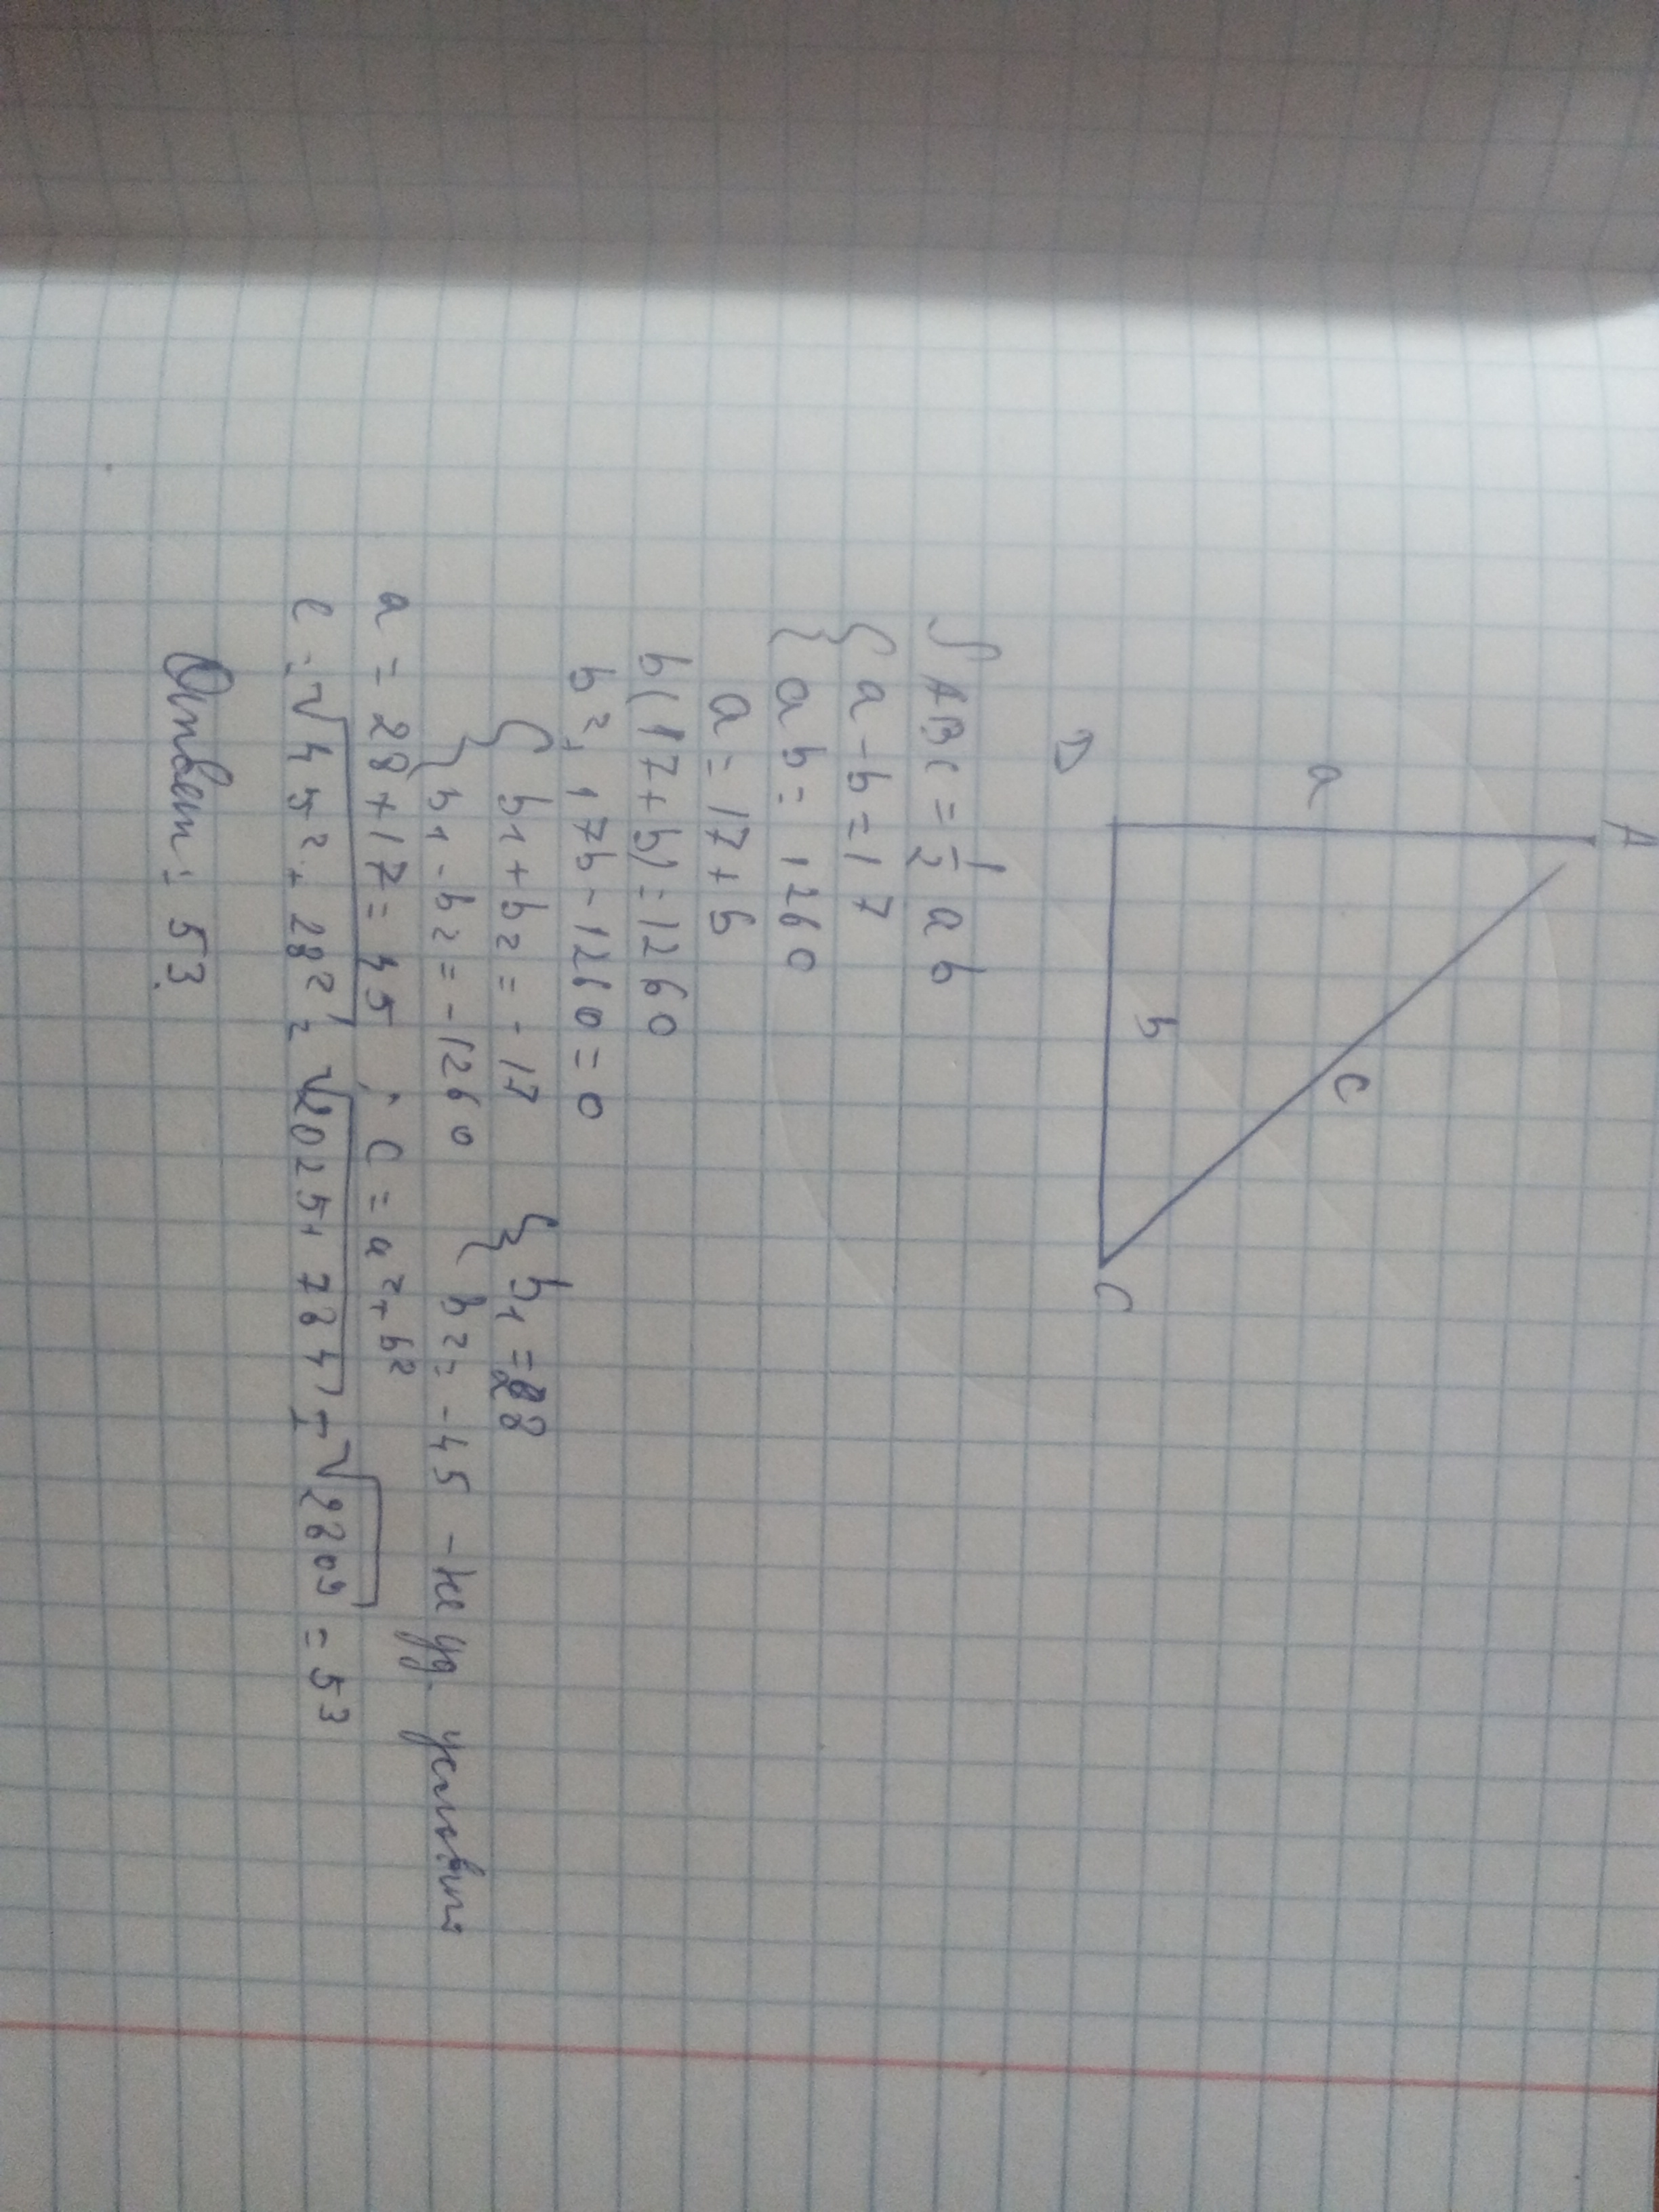 A
a
c
b
B
C
S ABC = 1/2 a b
{ a - b = 17
{ a b = 1260
a = 17 + b
b(17 + b) = 1260
b² + 17b - 1260 = 0
{ b1 + b2 = -17 { b1 = 28
{ b1 - b2 = -1260 { b2 = -45 - не уд. условию
a = 28 + 17 = 45 ; C = a² + b²
c = √45² + 28² = √2025 + 784 = √2809 = 53
Ответ: 53.